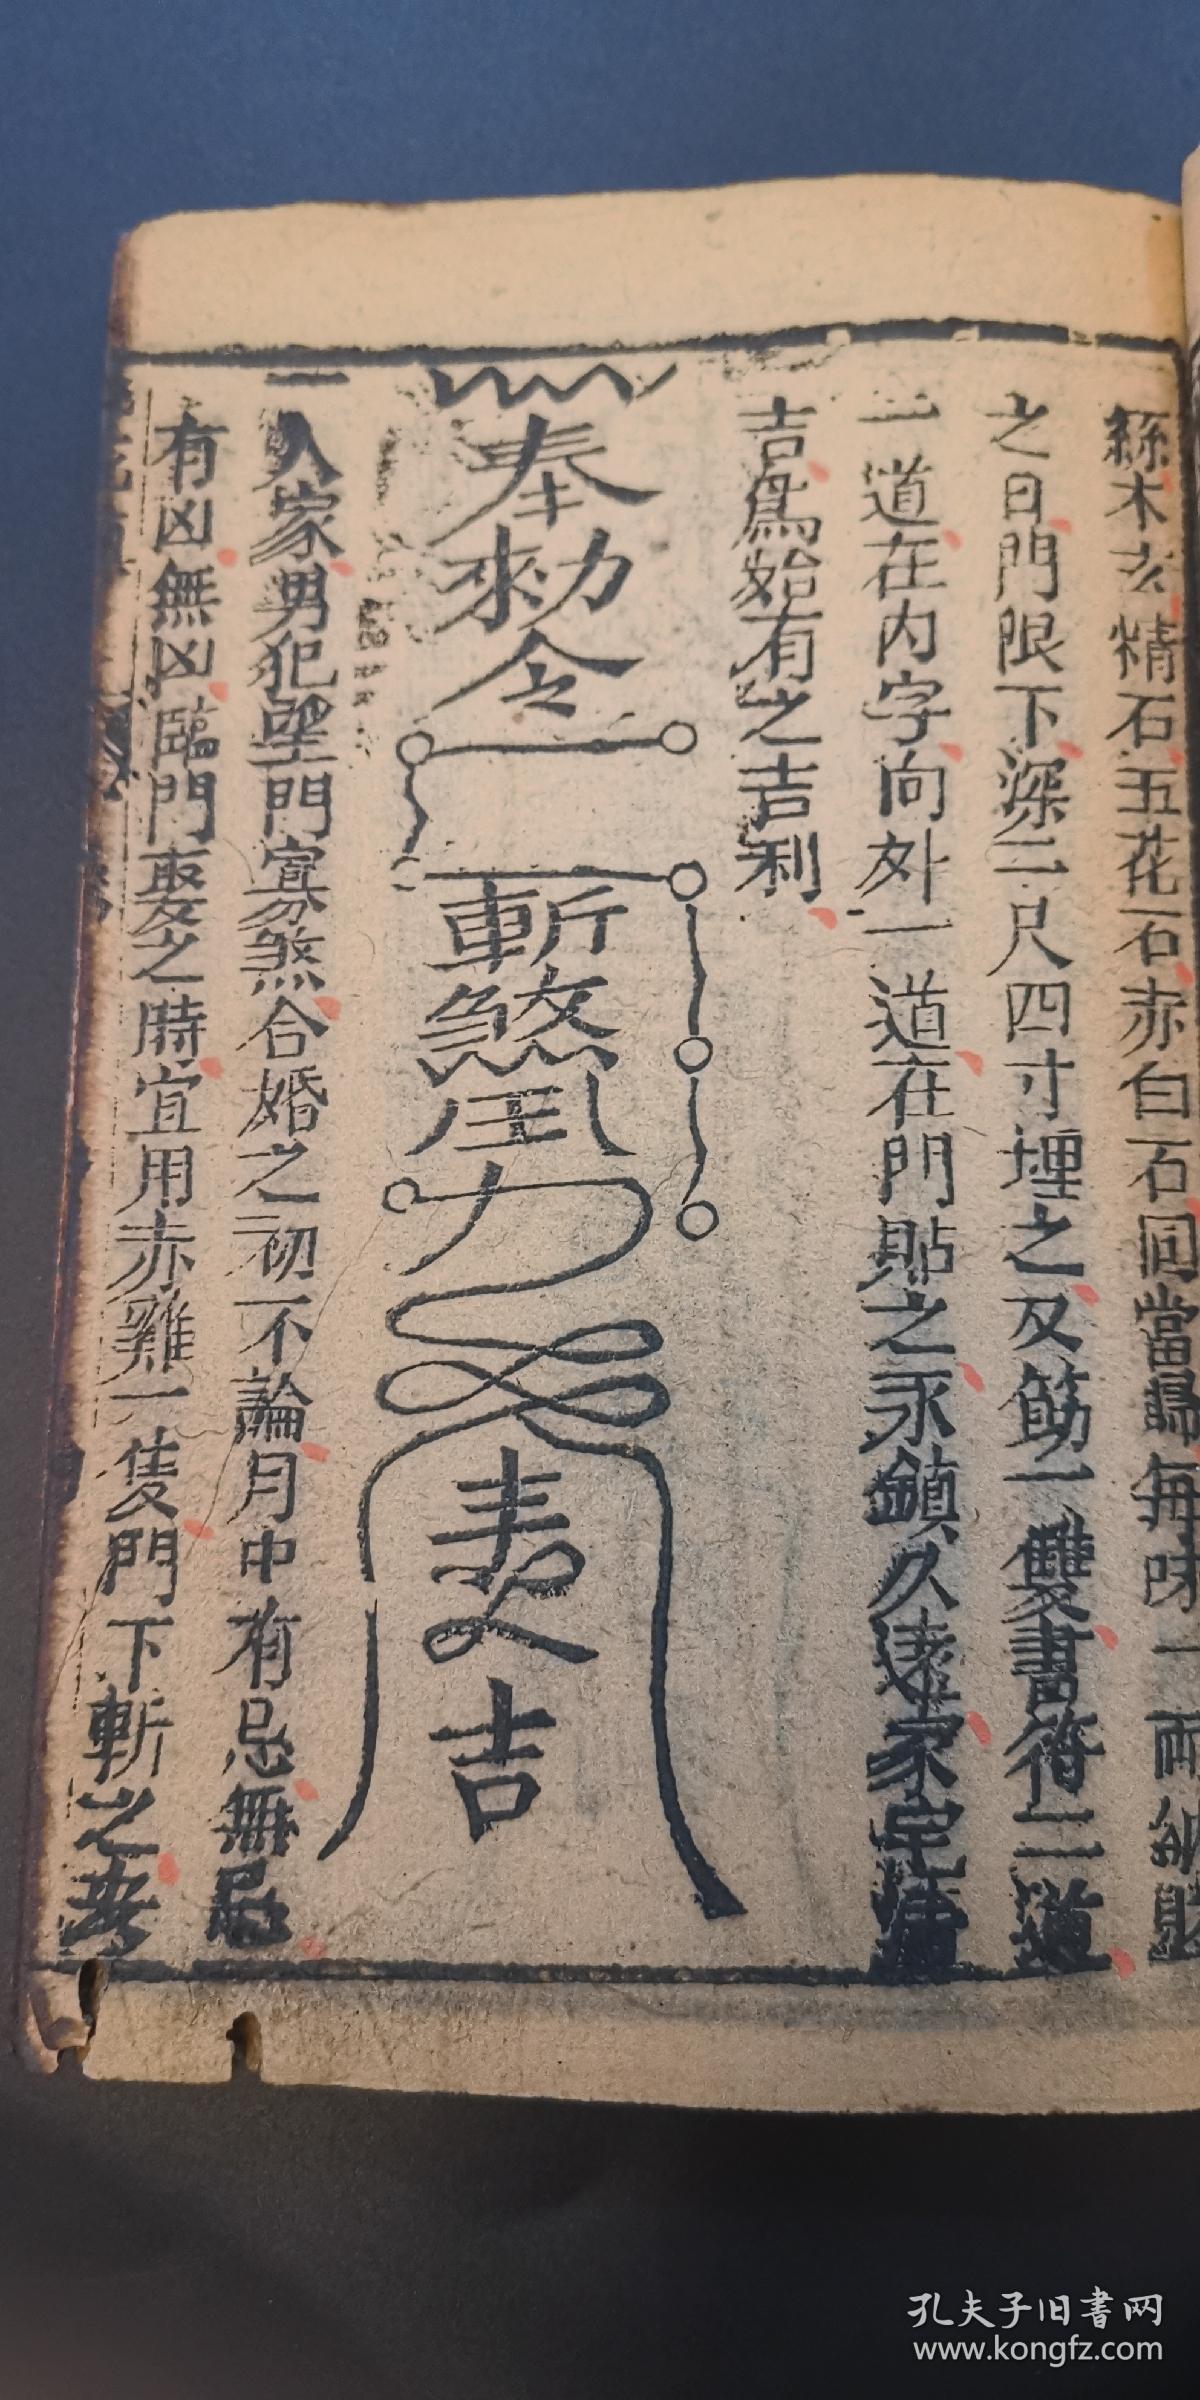 絲木玄精石五花石赤白石同當歸每味一兩納財
之日門限下深二尺四寸埋之及筯一雙書符二道
一道在内字向外一道在門貼之永鎮久遠家宅
吉爲始有之吉利
奉勅令
斬煞
吉
一人家男犯望門寡煞合婚之初不論月中有忌無忌
有凶無凶臨門娶之時宜用赤雞一隻門下斬之
孔夫子旧書网
www.kongfz.com